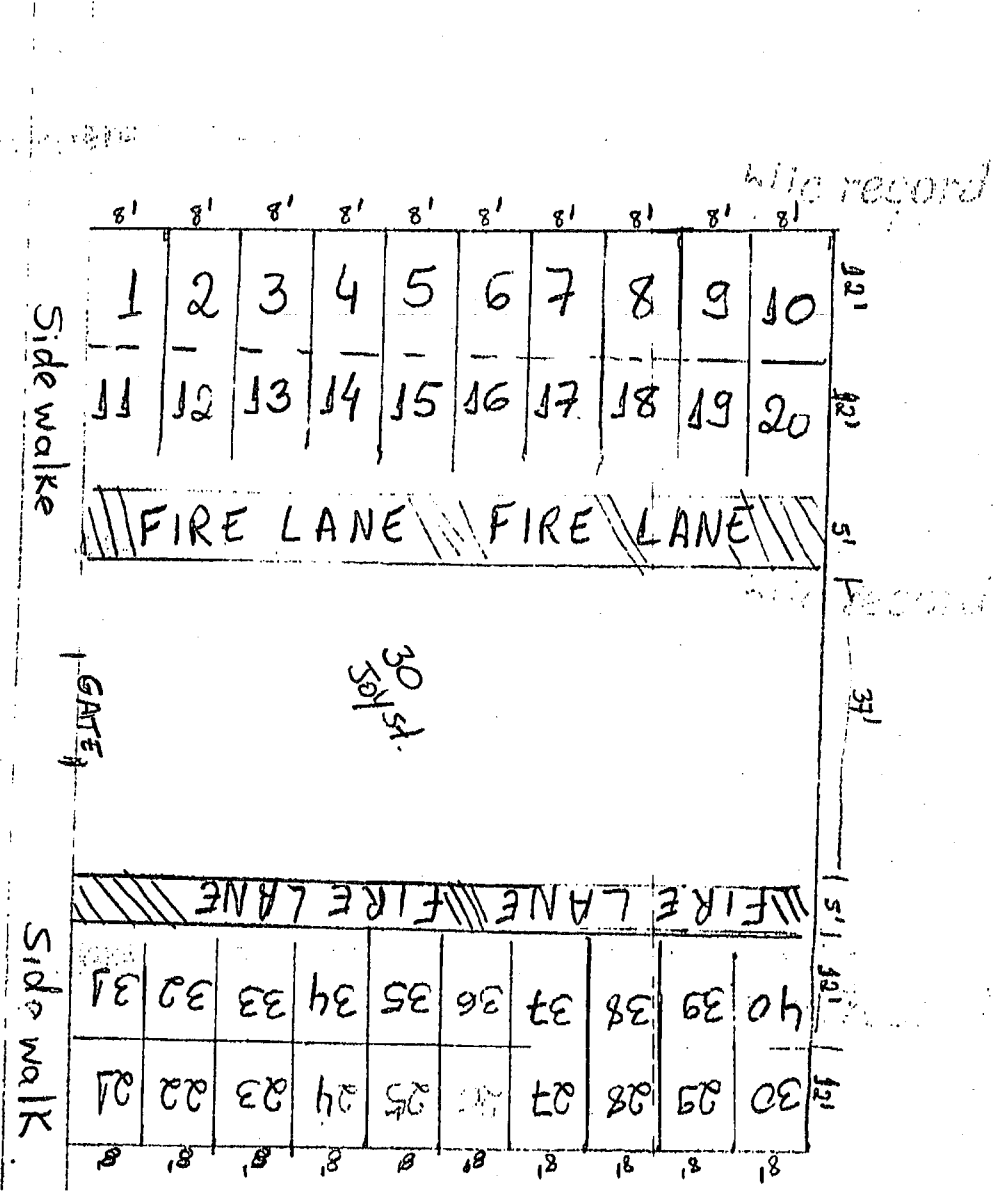 hild record
8' 8' 8' 8' 8' 8' 8' 8' 8' 8'
1 2 3 4 5 6 7 8 9 10 12'
11 12 13 14 15 16 17 18 19 20 12'
Side walke
FIRE LANE FIRE LANE 5'
record
30
Joy st.
37'
GATE
FIRE LANE FIRE LANE 5'
31 32 33 34 35 36 37 38 39 40 12'
21 22 23 24 25 27 28 29 30 12'
Side walk
8' 8' 8' 8' 8' 8' 8' 8' 8' 8'